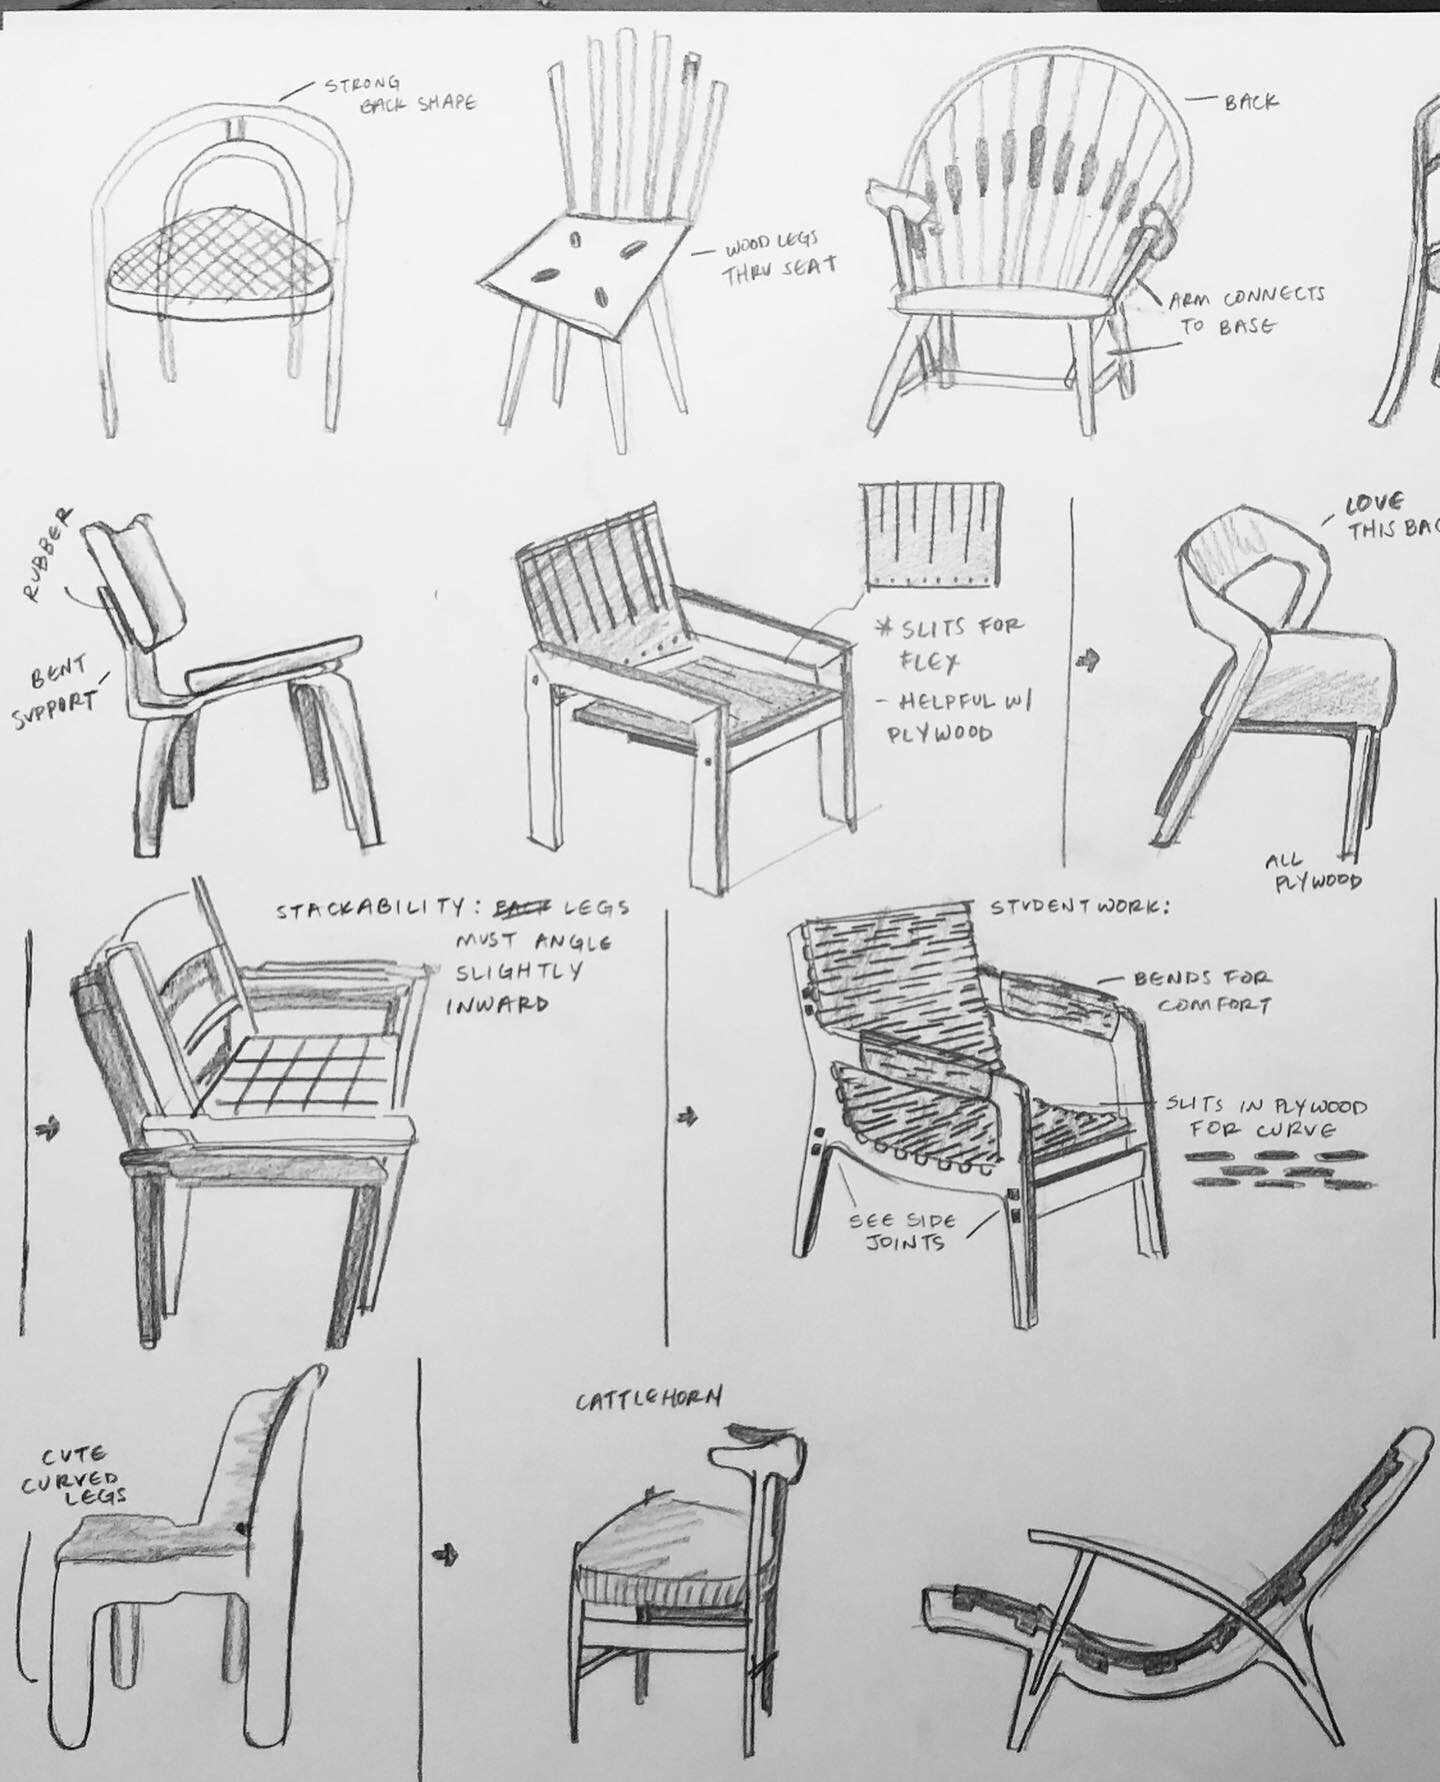 STRONG
BACK SHAPE
WOOD LEGS
THRU SEAT
BACK
ARM CONNECTS
TO BASE
RUBBER
BENT
SUPPORT
* SLITS FOR
FLEX
- HELPFUL W/
PLYWOOD
LOVE
THIS BAC
ALL
PLYWOOD
STACKABILITY: BACK LEGS
MUST ANGLE
SLIGHTLY
INWARD
STUDENT WORK:
BENDS FOR
COMFORT
SLITS IN PLYWOOD
FOR CURVE
SEE SIDE
JOINTS
CUTE
CURVED
LEGS
CATTLEHORN